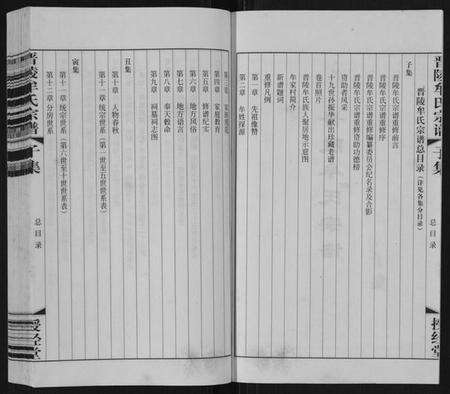 晋陵牟氏宗谱 子集
总目录
授经堂
晋陵牟氏宗谱总目录（详见各集分目录）
子集
晋陵牟氏宗谱重修前言
晋陵牟氏宗谱重修序
晋陵牟氏宗谱重修编纂委员会纪名录及合影
晋陵牟氏宗谱重修资助功德榜
资助者风采
十九世孙振华献出珍藏老谱
晋陵牟氏族人聚居地示意图
卷首照片
牟家村简介
新谱题词
重修凡例
第一章 先祖像赞
第二章 牟姓探源
第四章 家庭教育
第五章 修谱纪实
第六章 地方风俗
第七章 地方语言
第八章 奉天敕命
第九章 祠墓祠志图
丑集
第十章 人物春秋
第十一章 统宗世系（第一世至五世世系表）
寅集
第十一章 统宗世系（第六世至十世世系表）
第十二章 分房世系
晋陵牟氏宗谱 子集
总目录
授经堂